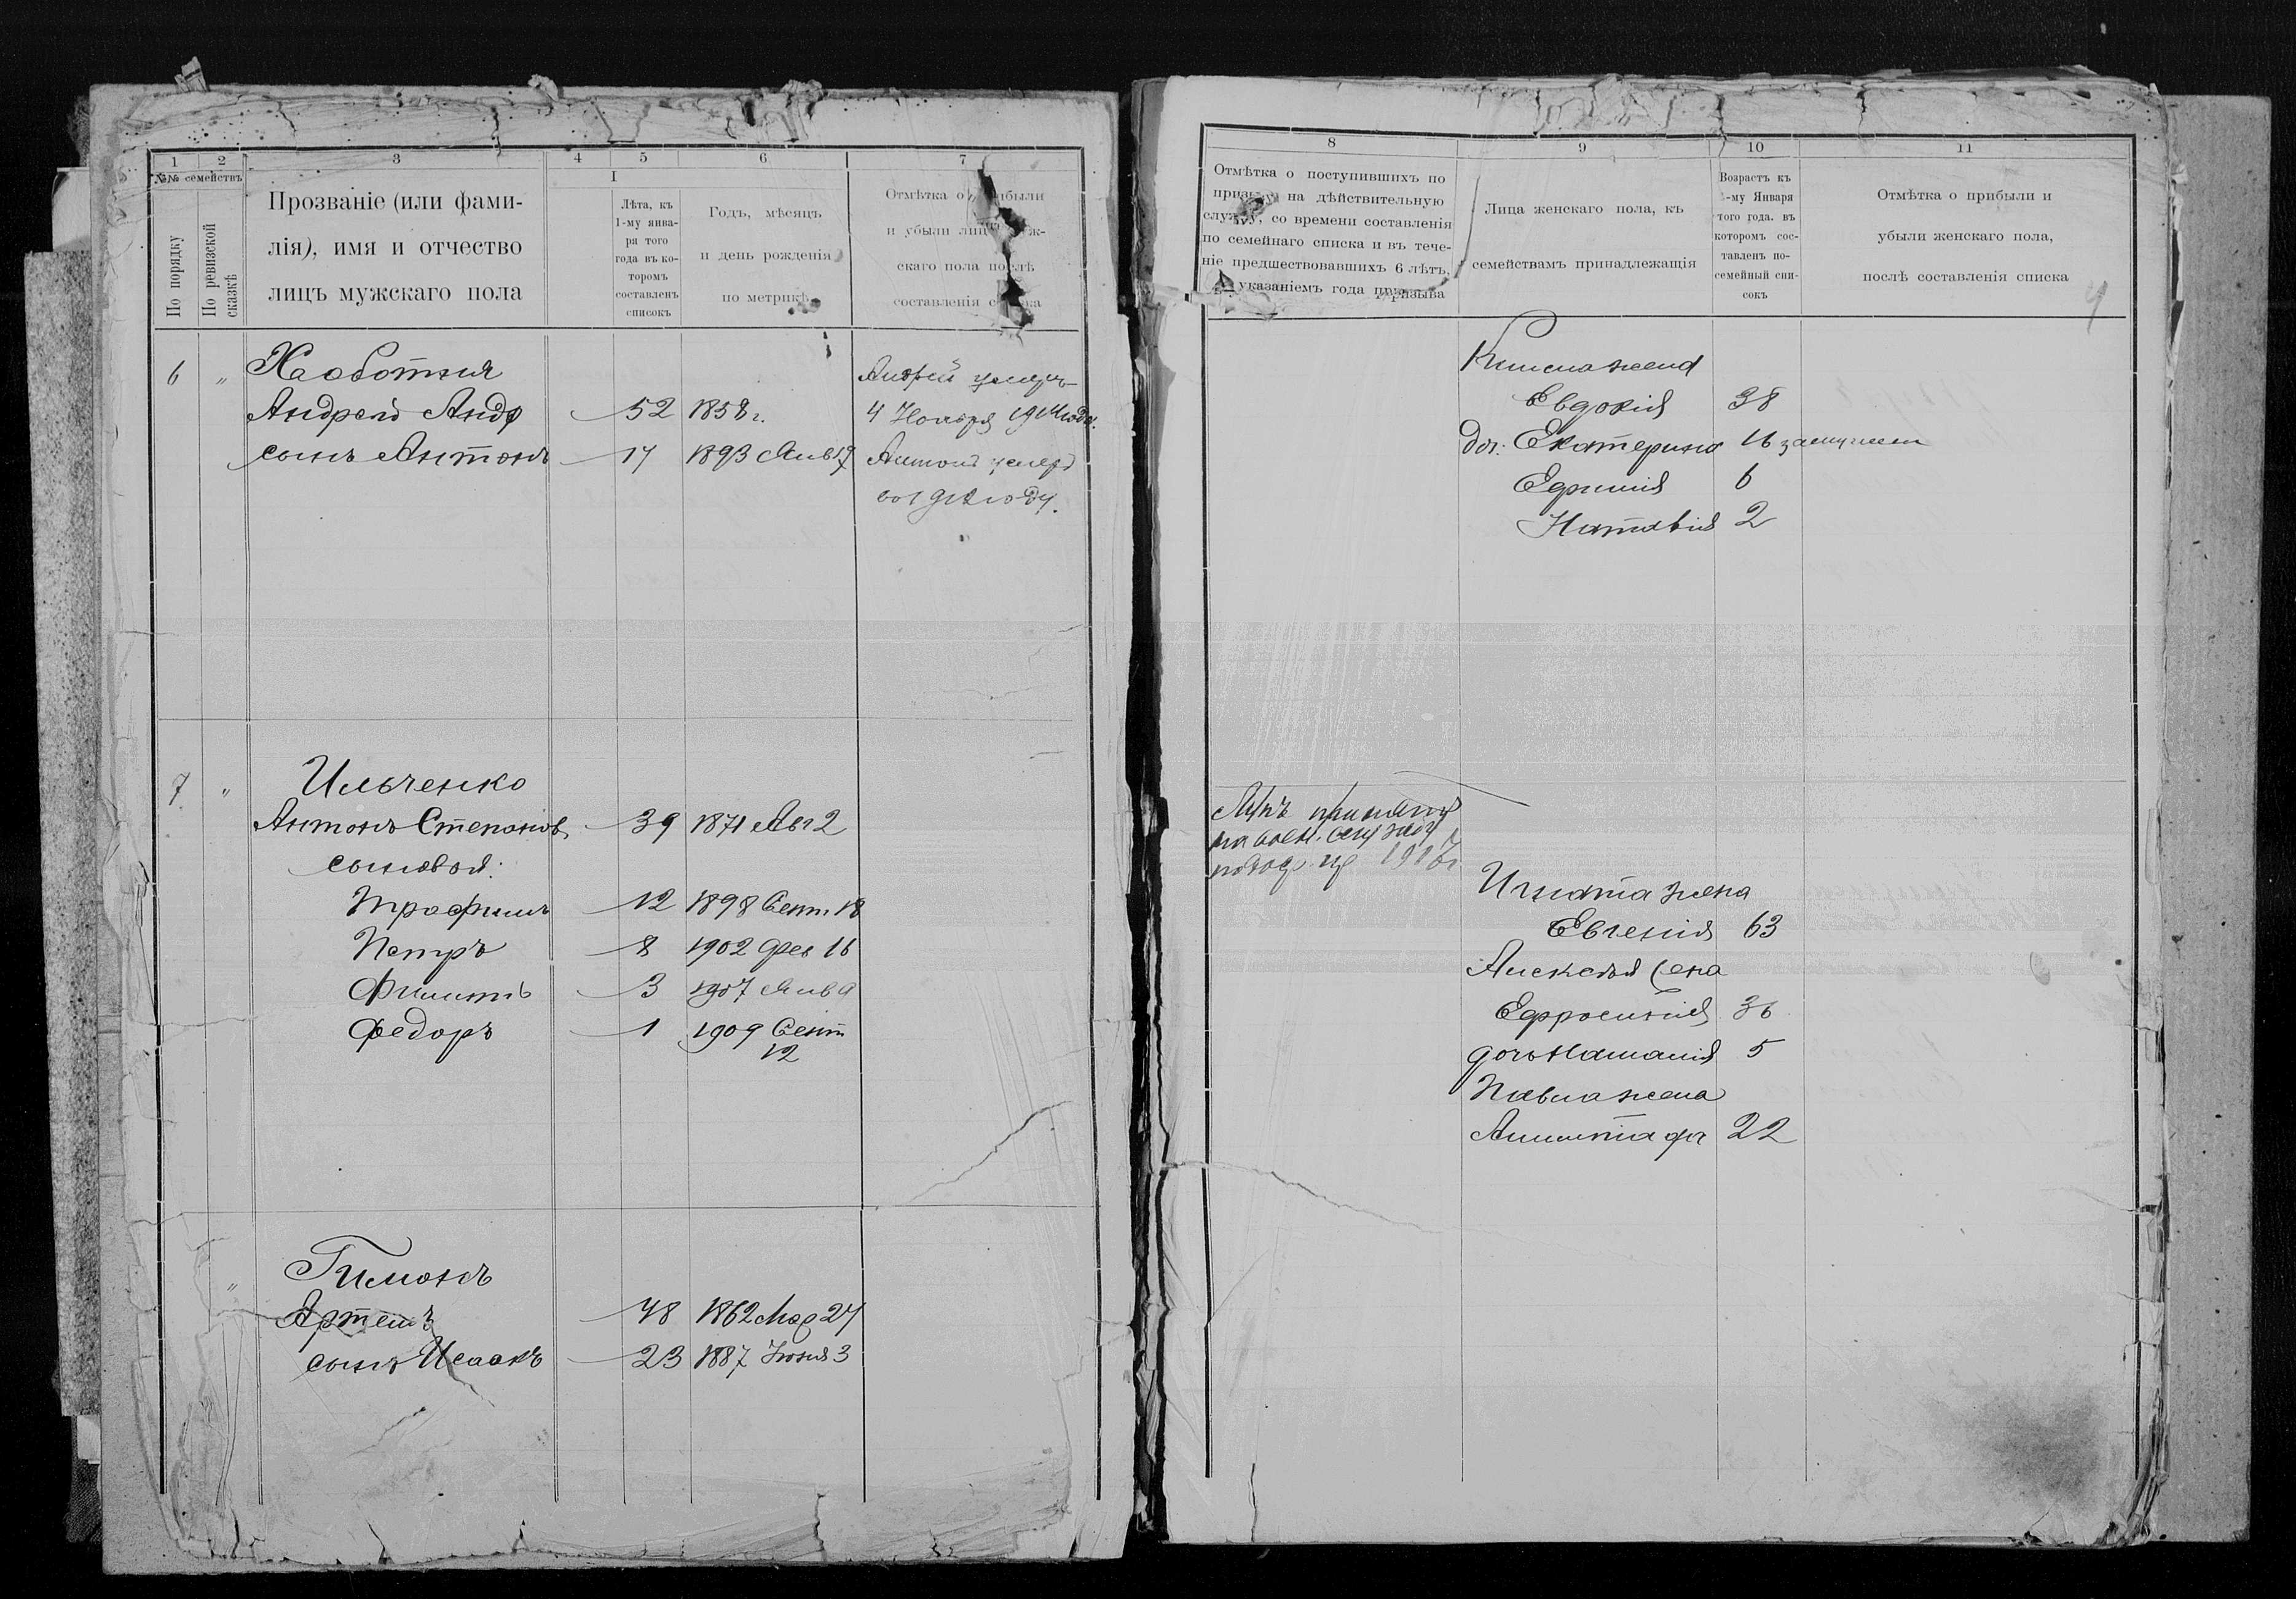 1 2 3 4 5 6 7
№№ семействъ
По порядку
По ревизской сказкѣ
Прозваніе (или фами-
лія), имя и отчество
лицъ мужскаго пола
I
Лѣта, къ
1-му янва-
ря того
года въ ко-
торомъ
составленъ
списокъ
Годъ, мѣсяцъ
и день рожденія
по метрикѣ
Отмѣтка о
и убыли
скаго пола послѣ
составленія
6 " Хаоботня
Андрей Андр 52 1858 г.
сынъ Антонъ 17 1893 Янв 17
Андрей умеръ
4 Ноября 1914 года.
Антонъ умеръ
7 " Ильченко
Антонъ Степановъ 39 1871 Авг 2
сыновья:
Трофимъ 12 1898 Сент 18
Петръ 8 1902 Фев 16
Филиппъ 3 1907 Янв 9
Федоръ 1 1909 Сент
12
" Гимонъ
Артемъ 48 1862 Мар 24
сынъ Исаакъ 23 1887 Іюня 3
8 9 10 11
Отмѣтка о поступившихъ по
на дѣйствительную
службу, со времени составленія
по семейнаго списка и въ тече-
ніе предшествовавшихъ 6 лѣтъ,
указаніемъ года призыва
Лица женскаго пола, къ
семействамъ принадлежащія
Возрастъ къ
1-му Января
того года. въ
которомъ сос-
тавленъ по-
семейный спи-
сокъ
Отмѣтка о прибыли и
убыли женскаго пола,
послѣ составленія списка
жена
Евдокія 38
доч: Екатерина 16 замужем
Ефимія 6
Наталія 2
на воен. службу
Игната жена
Евгенія 63
Алексѣя жена
Ефросинія 36
дочь 5
Павла жена
22